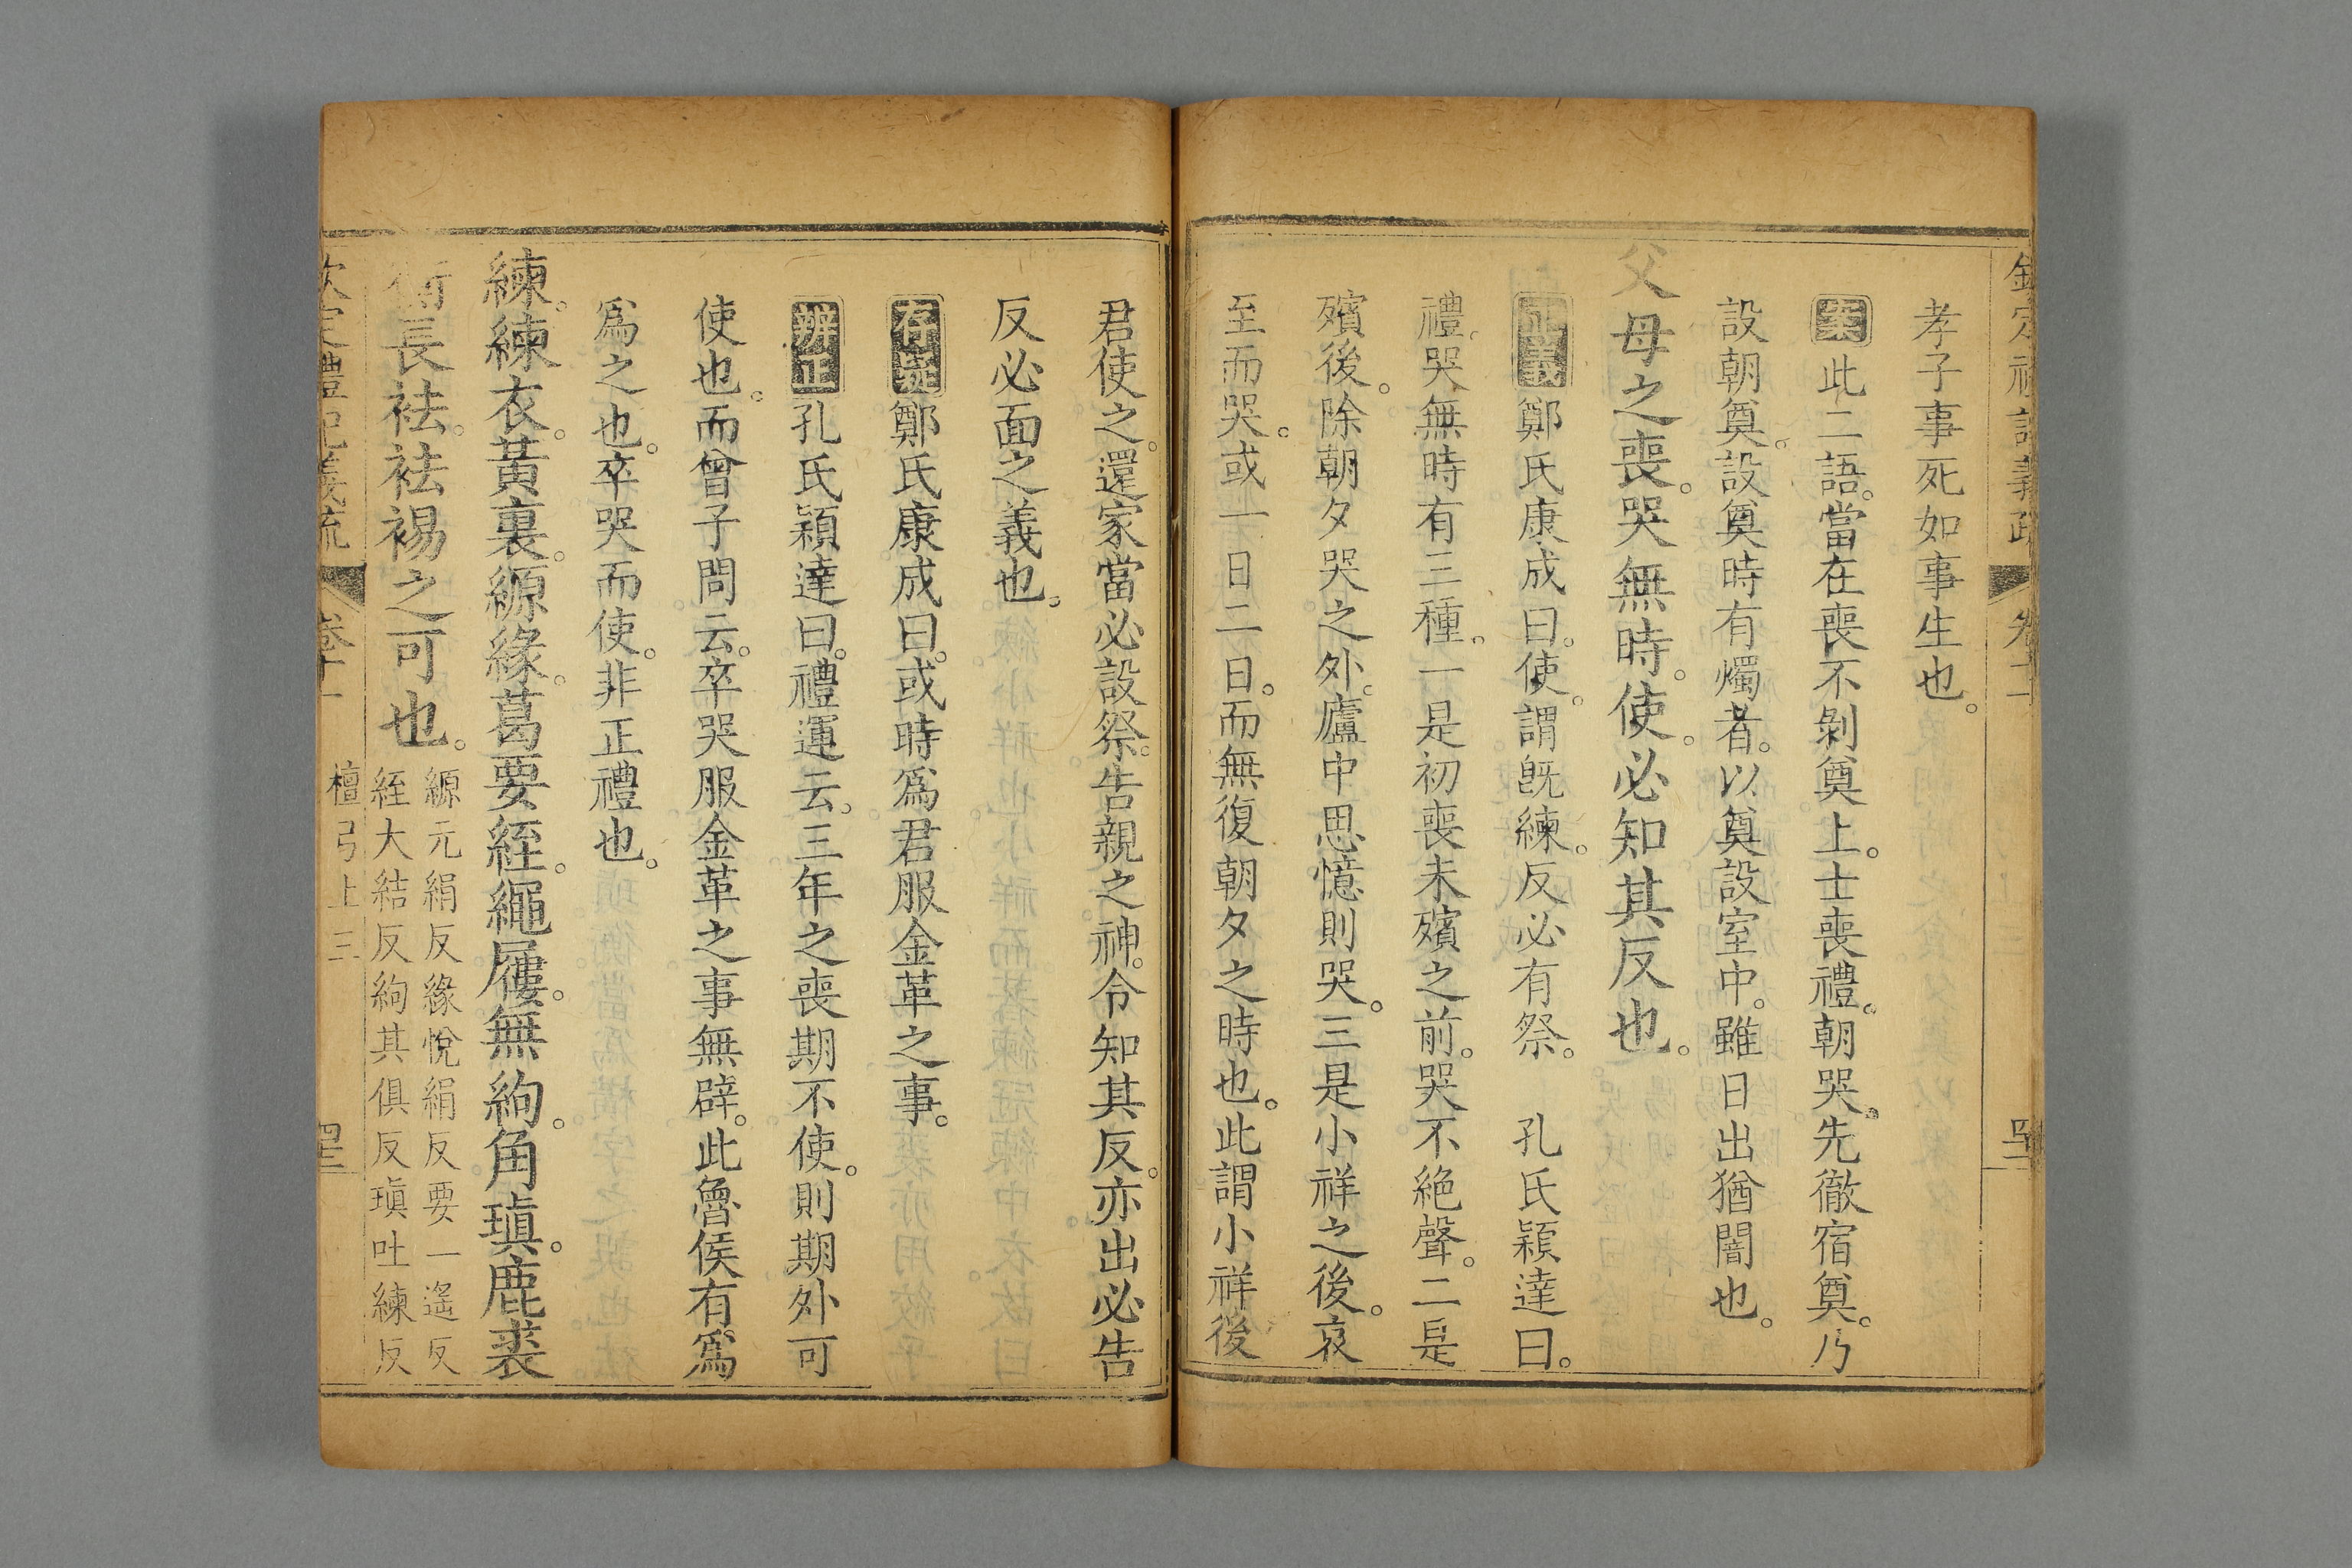 孝子事死如事生也。
案此二語。當在喪不剝奠上。士喪禮。朝哭。先徹宿奠。乃
設朝奠。設奠時有燭者。以奠設室中。雖日出猶闇也。
父母之喪。哭無時。使。必知其反也。
正義鄭氏康成曰。使。謂旣練。反必有祭。 孔氏穎達曰。
禮。哭無時有三種。一是初喪未殯之前。哭不絕聲。二是
殯後。除朝夕哭之外。廬中思憶則哭。三是小祥之後。哀
至而哭。或一日二日。而無復朝夕之時也。此謂小祥後
君使之。還家當必設祭。告親之神。令知其反。亦出必告
反必面之義也。
存疑鄭氏康成曰。或時爲君服金革之事。
辨正孔氏穎達曰。禮運云。三年之喪期不使。則期外可
使也。而曾子問云。卒哭服金革之事無辟。此魯侯有爲
爲之也。卒哭而使。非正禮也。
練。練衣。黃裏。縓緣。葛要絰。繩屨。無絇。角瑱。鹿裘
衡長袪。袪裼之可也。
縓元絹反緣悅絹反要一遙反
絰大結反絇其俱反瑱吐練反
欽定禮記義疏 卷十一 檀弓上三